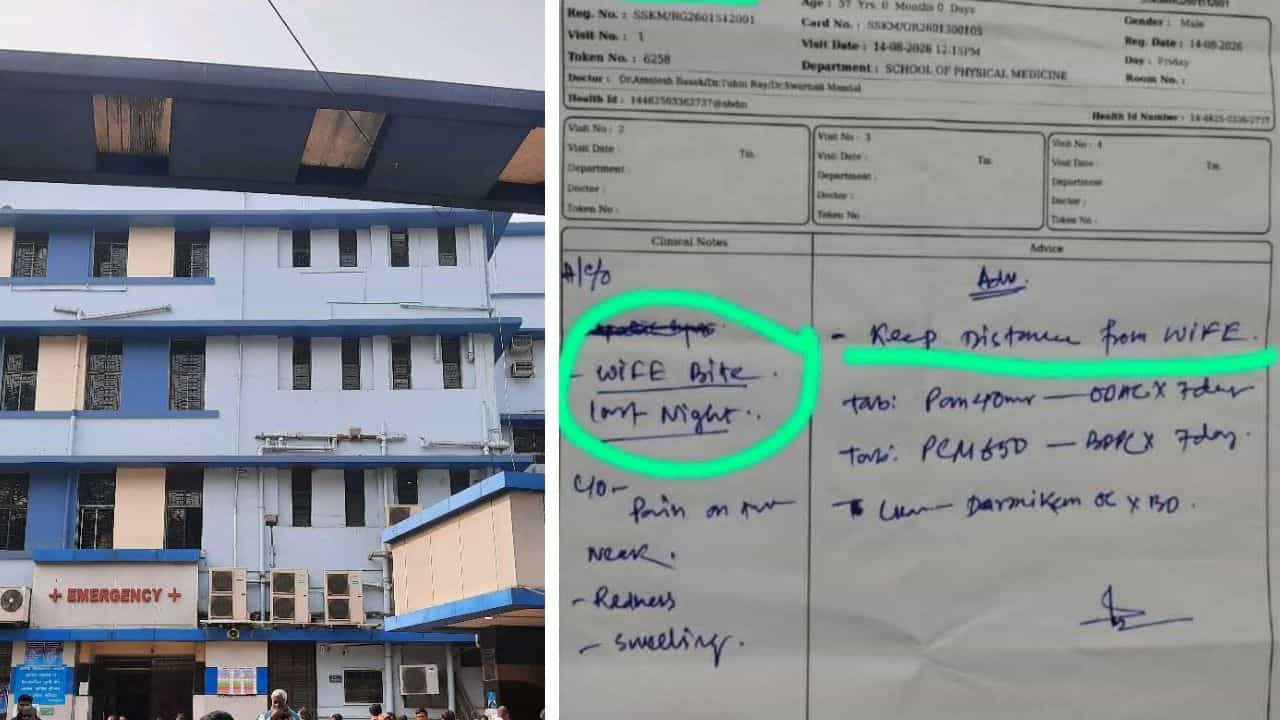 + EMERGENCY +
Age : 57 Yrs. 0 Months 0 Days
Reg. No. : SSKM/RG2601512001
Card No. : SSKM/OR2601300105
Gender : Male
Visit No. : 1
Visit Date : 14-08-2026 12:15PM
Reg. Date : 14-08-2026
Token No. : 6258
Department : SCHOOL OF PHYSICAL MEDICINE
Day : Friday
Room No. :
Doctor : Dr.Amalesh Basak/Dr.Tuhin Ray/Dr.Swarnali Mandal
Health Id : 14482503362737@abdm
Health Id Number :
Visit No : 2
Visit Date :
Tm.
Department :
Doctor :
Token No :
Visit No : 3
Visit Date :
Tm.
Department :
Doctor :
Token No :
Visit No : 4
Visit Date :
Tm.
Department :
Doctor :
Token No :
Clinical Notes
Advice
A/c/o
- WIFE Bite.
last Night..
c/o -
Pain on
Near.
- Redness
- Swelling.
Adv.
- Keep Distance from WIFE.
Tab: Pan 40mg — ODAC X 7day
Tab: PCM 650 — BDPC X 7day.
X BD.